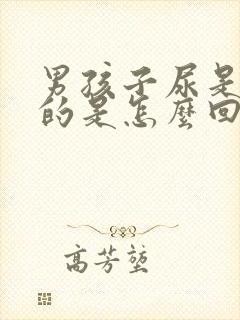 男孩子尿是
的是怎麼回
高芳堃